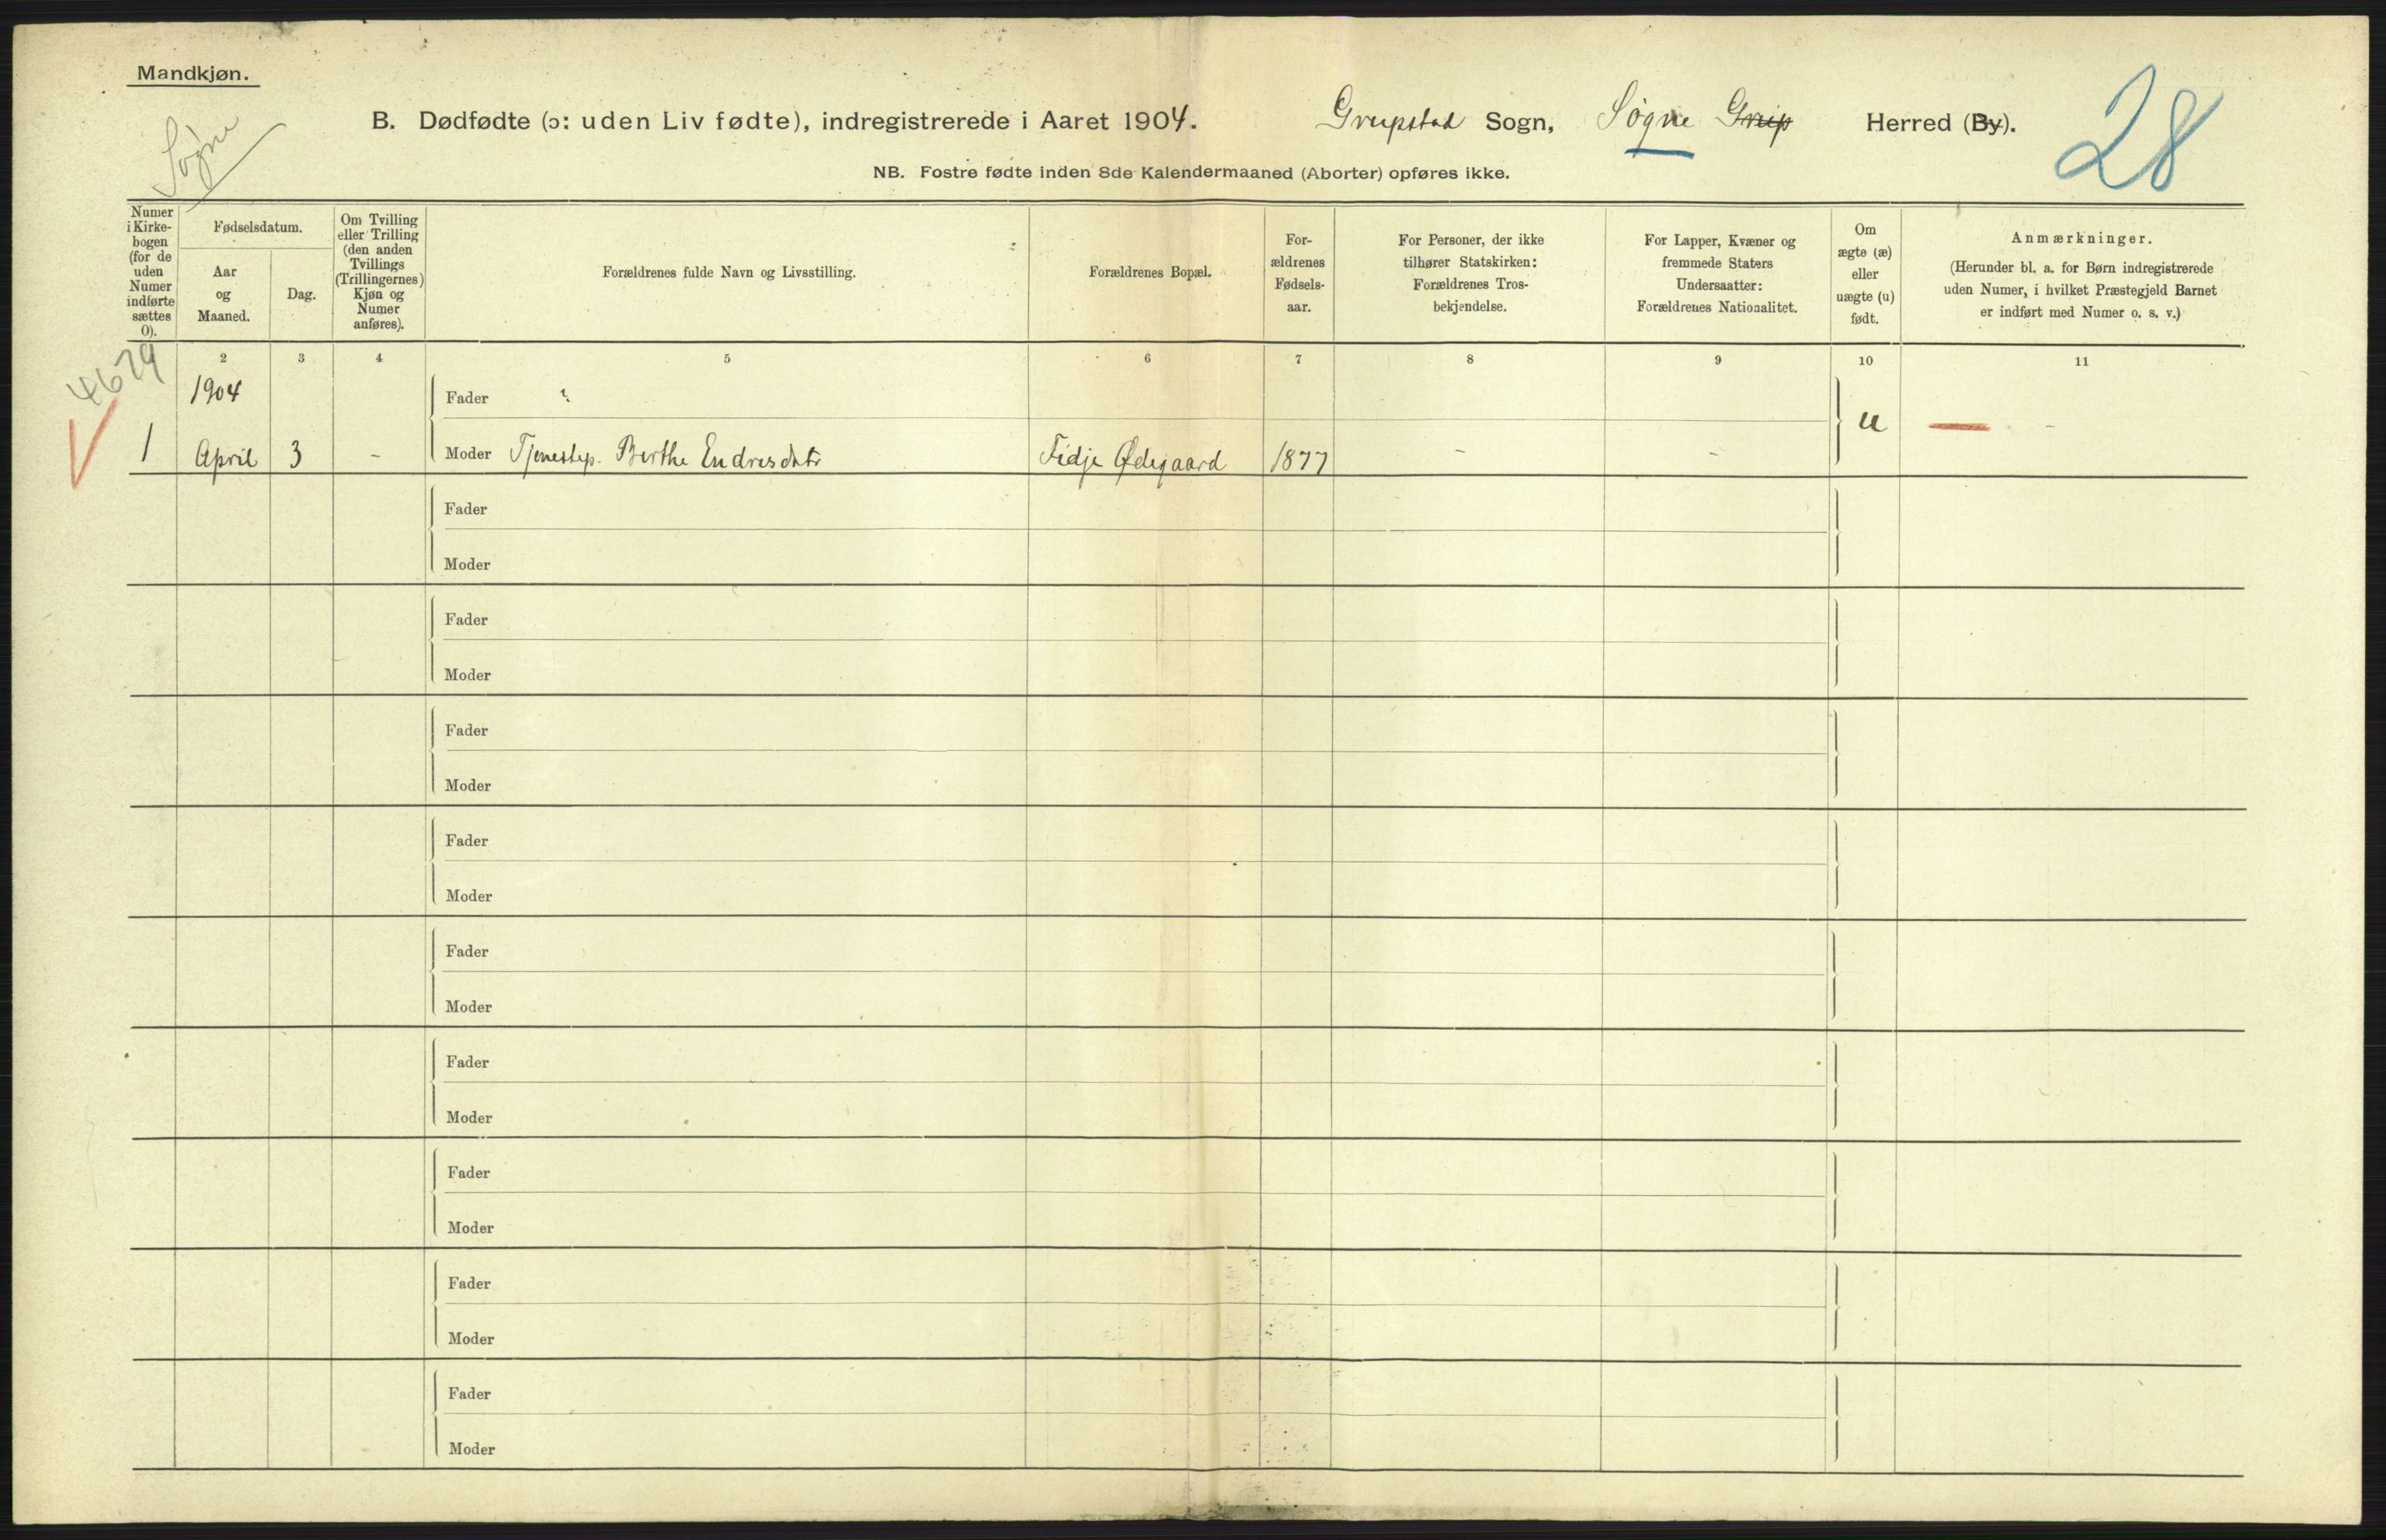 Mandkjøn.
Søgne
B. Dødfødte (ɔ: uden Liv fødte), indregistrerede i Aaret 1904. Greipstad Sogn, Søgne Greip Herred (By).
28
NB. Fostre fødte inden 8de Kalendermaaned (Aborter) opføres ikke.
Numer i Kirke-bogen (for de uden Numer indførte sættes 0).
Fødselsdatum.
Aar og Maaned.
Dag.
Om Tvilling eller Trilling (den anden Tvillings (Trillingernes) Kjøn og Numer anføres).
Forældrenes fulde Navn og Livsstilling.
Forældrenes Bopæl.
For-ældrenes Fødsels-aar.
For Personer, der ikke tilhører Statskirken: Forældrenes Tros-bekjendelse.
For Lapper, Kvæner og fremmede Staters Undersaatter: Forældrenes Nationalitet.
Om ægte (æ) eller uægte (u) født.
Anmærkninger.
(Herunder bl. a. for Børn indregistrerede uden Numer, i hvilket Præstegjeld Barnet er indført med Numer o. s. v.)
2 3 4 5 6 7 8 9 10 11
4679
1904 Fader ? u -
1 April 3 - Moder Tjenestep. Berthe Endresdatr Fidje Ødegaard 1877 - -
Fader
Moder
Fader
Moder
Fader
Moder
Fader
Moder
Fader
Moder
Fader
Moder
Fader
Moder
Fader
Moder
Fader
Moder